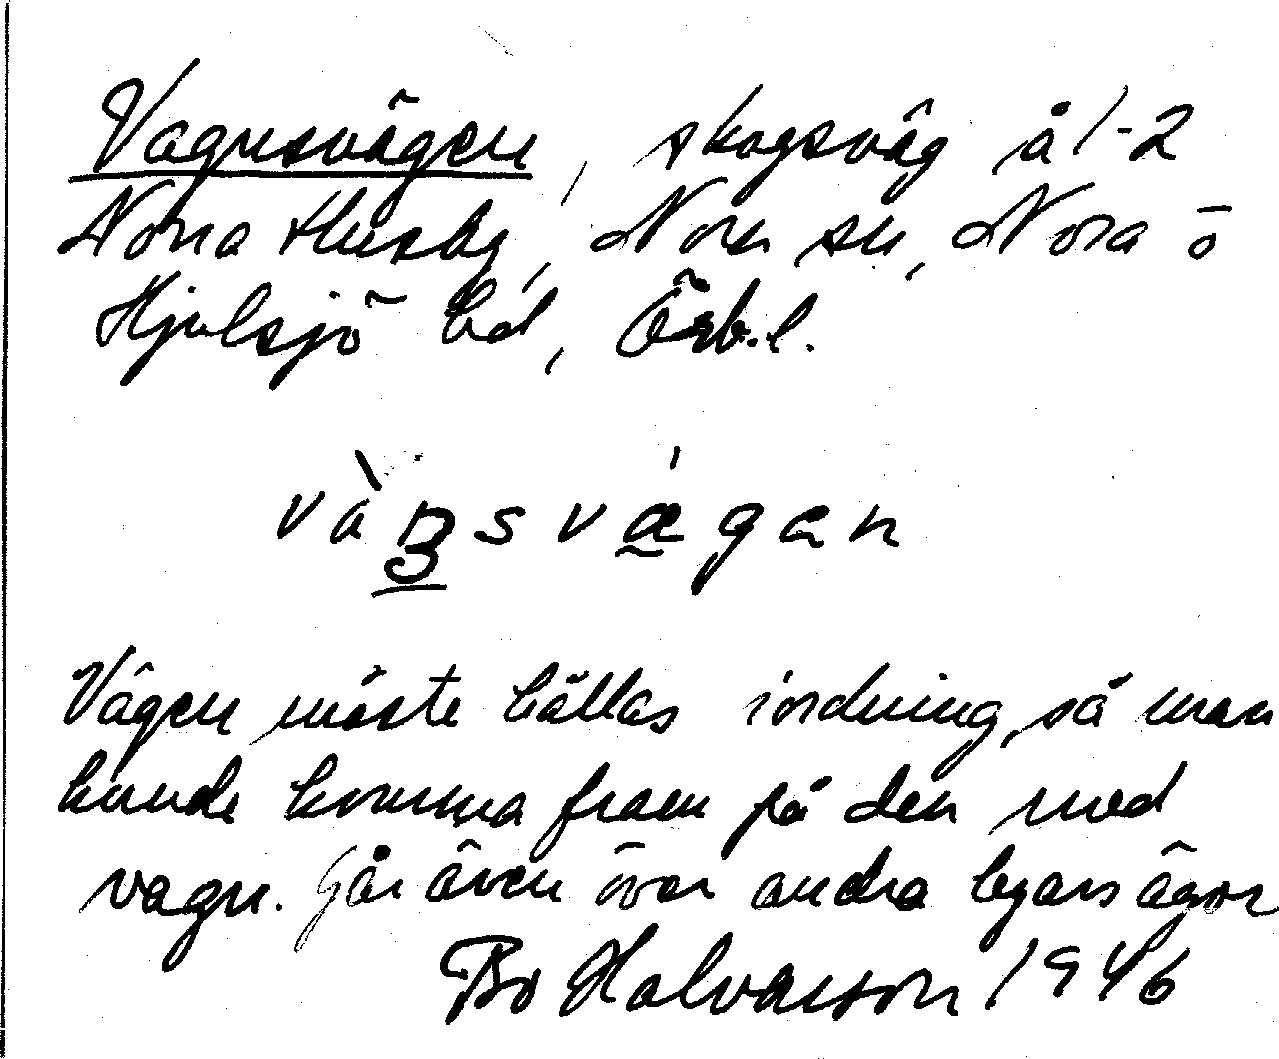 Vagnsvägen, skogsväg å 1-2
Nora Husby, Nora sn, Nora o
Hjulsjö bd, Örb.l.
vàŋsvǽgan
Vägen måste hållas i ordning, så man
kunde komma fram på den med
vagn. Går även över andra byars ägor
Bo Halvarson 1946